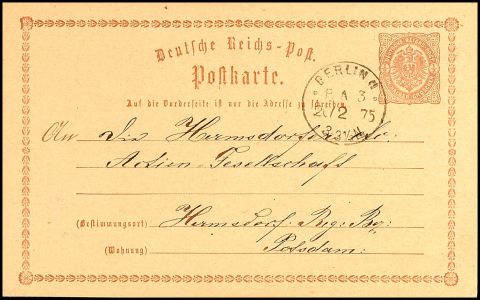 Deutsche Reichs-Post.
Postkarte.
Auf die Vorderseite ist nur die Adresse zu schreiben.
BERLIN
P. A. 3
20/2 75
An Die Hermsdorfer
Actien-Gesellschaft
(Bestimmungsort) Hermsdorf. Reg: Bz:
(Wohnung) Potsdam.